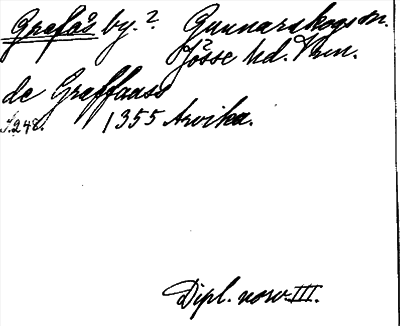 Grafås by.? Gunnarskogs sn.
Jösse hd. Vrm.
de Graffaass
S.248. 1355 Arvika.
Dipl. norv. III.